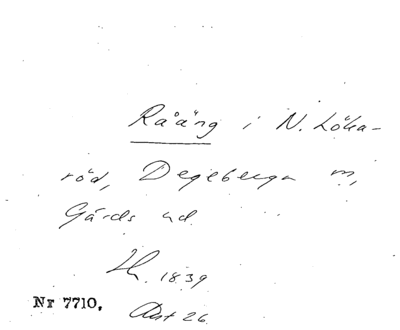 Råäng i N. Löka-
röd, Degeberga m,
Gärds hd.
1839
Nr 7710. Akt 26